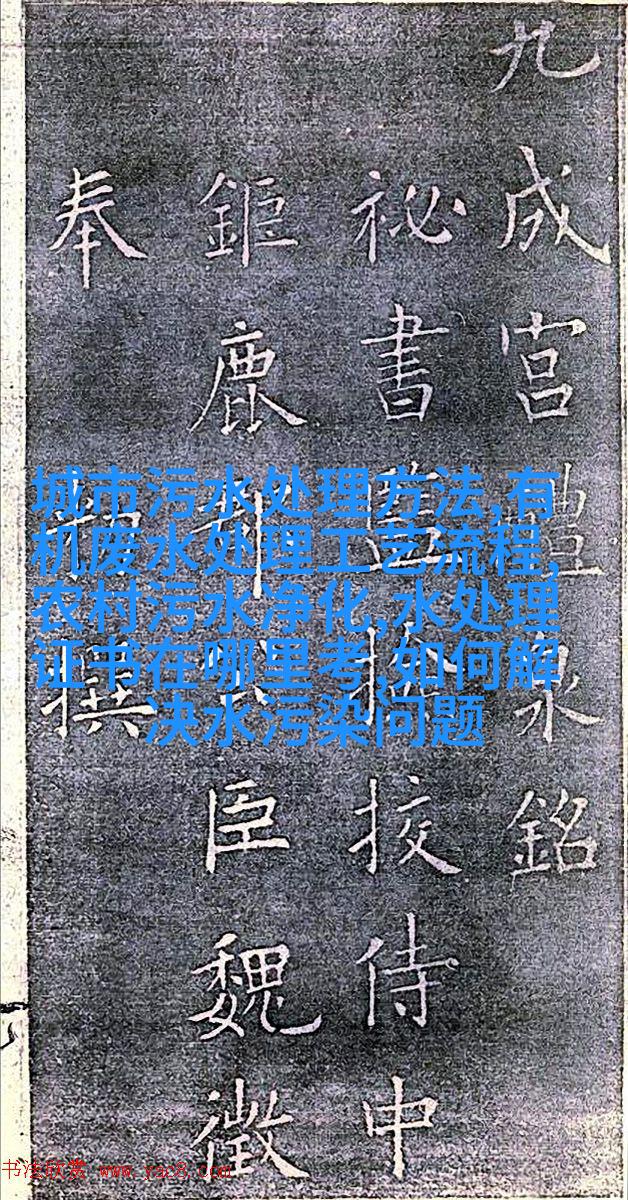 九成宮醴泉銘
祕書撿挍侍中
鉅鹿臣魏徵
奉撰
城市污水处理方法,有
机废水处理工艺流程,
农村污水净化,水处理
证书在哪里考,如何解
决水污染问题
书法欣赏 www.yac8.com